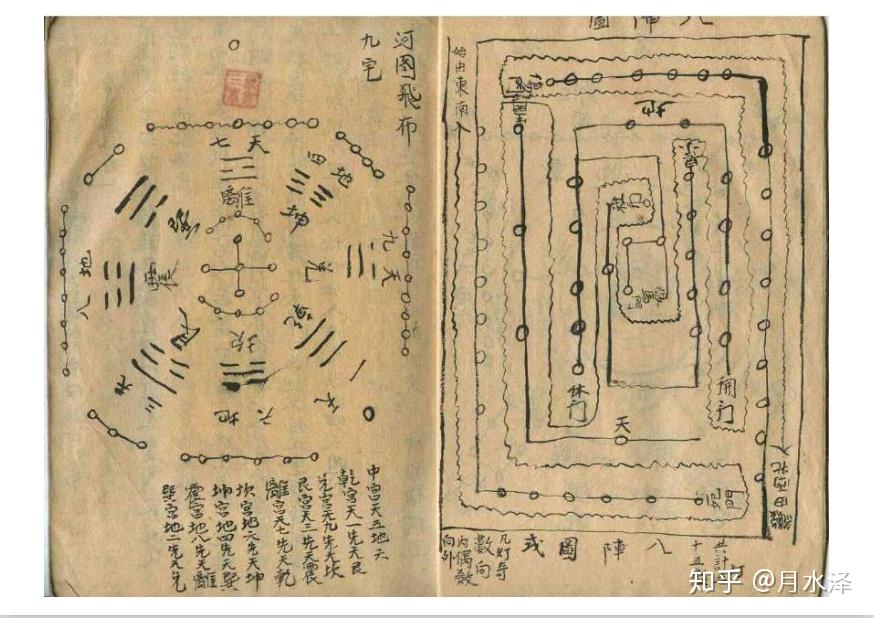 河图飛布
九宅
七 天
離
四 地
坤
九 天
兌
乾
一 天
坎
六 地
艮
震
八 地
中宮天五地十
乾宮天一先天艮
兌宮天九先天坎
艮宮天三先天震
離宮天七先天乾
坎宮地六先天坤
坤宮地四先天巽
震宮地八先天離
巽宮地二先天兌
八陣圖
始由東南入
地
休门
開门
天
死門
八陣圖式
凡灯奇
數向
内偶数
向外
知乎 @月水泽